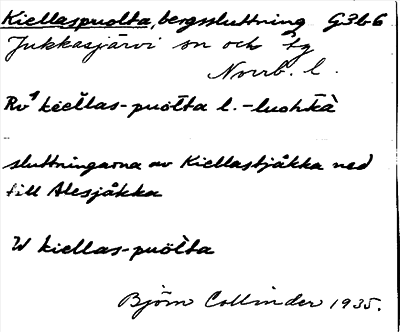 Kiellaspuolta, bergssluttning G3b6
Jukkasjärvi sn och tg
Norrb. l.
Rv¹ kiellas-puolta l. -luohkà
sluttningarna av Kiellastjåkka ned
till Alesjåkka
W kiellas-puolta
Björn Collinder 1935.